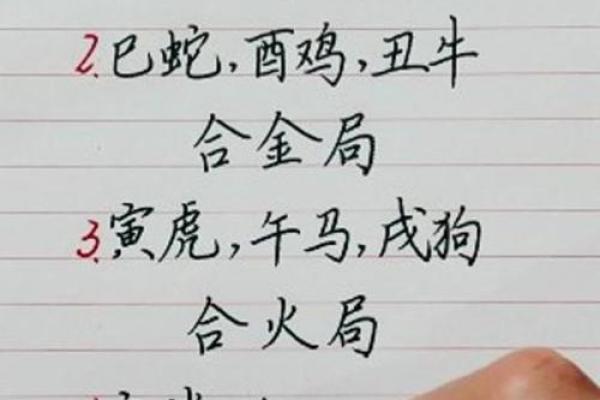 2.巳蛇,酉鸡,丑牛
合金局
3.寅虎,午马,戌狗
合火局